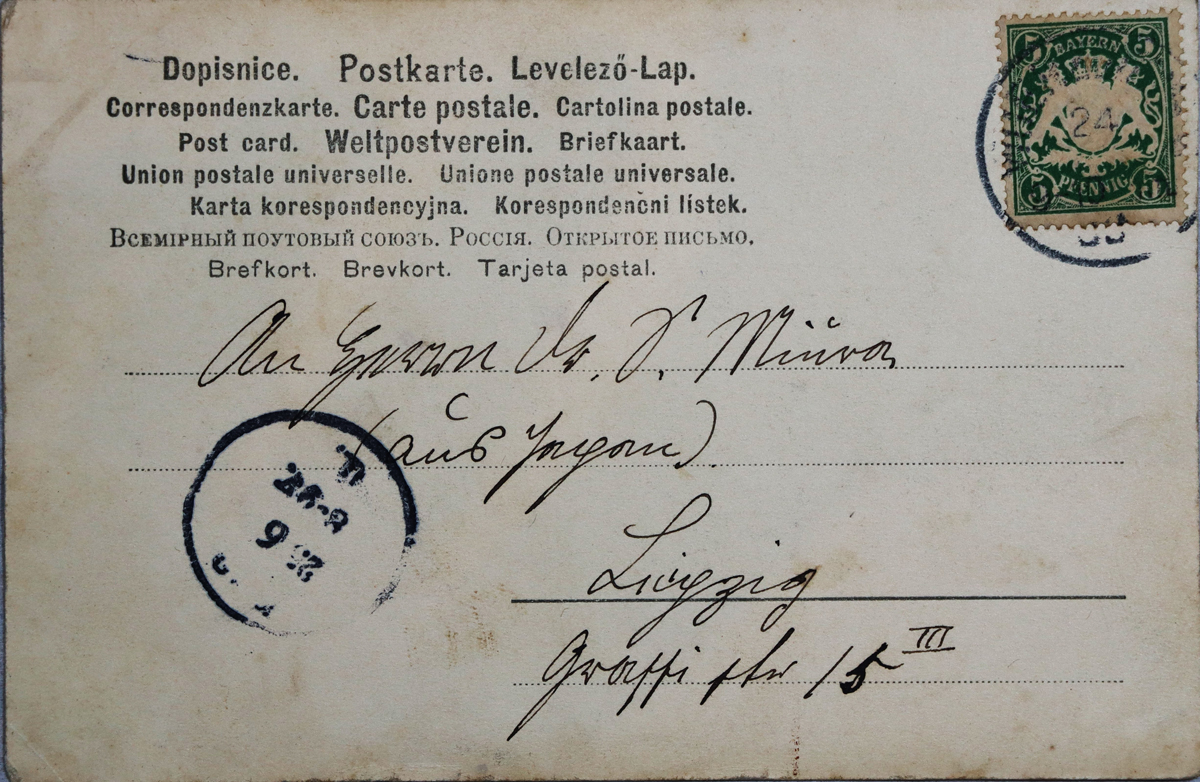 Dopisnice. Postkarte. Levelező-Lap.
Correspondenzkarte. Carte postale. Cartolina postale.
Post card. Weltpostverein. Briefkaart.
Union postale universelle. Unione postale universale.
Karta korespondencyjna. Korespondenčni lístek.
Всемірный поутовый союзъ. Россія. Открытое письмо.
Brefkort. Brevkort. Tarjeta postal.
5 BAYERN 5
24
5 PFENNIG 5
An Herrn Dr. S. Miura
(aus Japan).
Leipzig
Grassi str 15 III